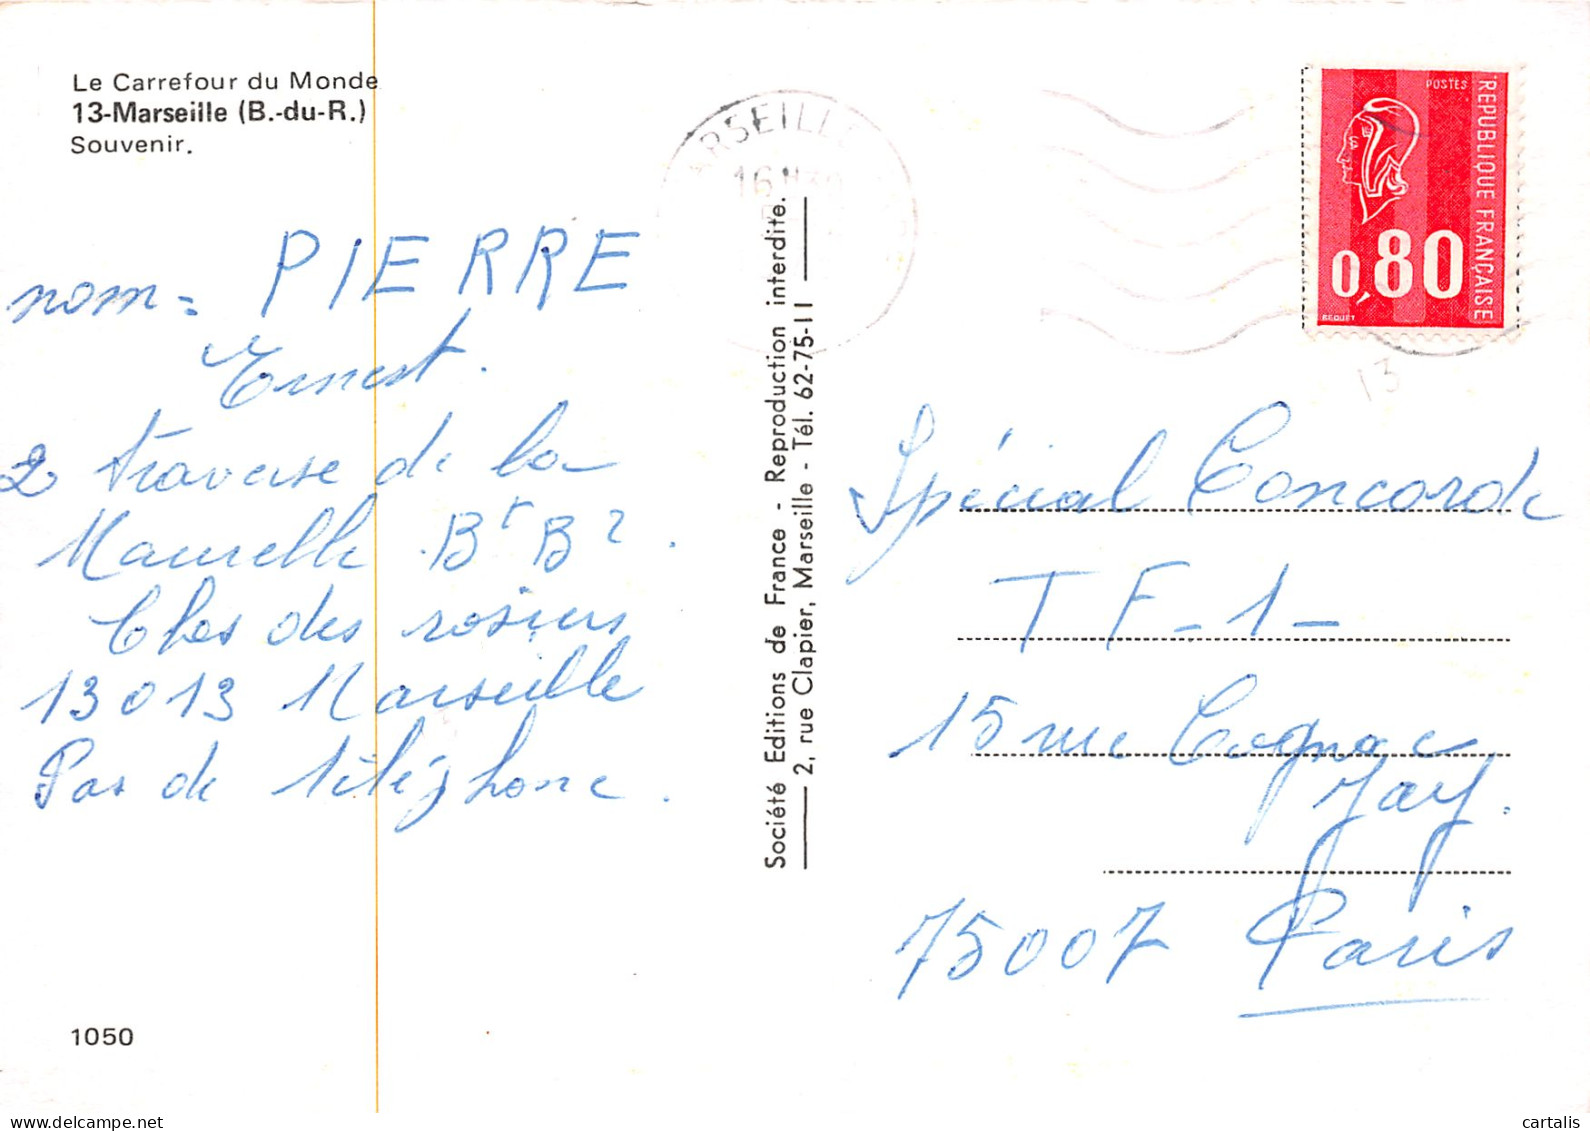 Le Carrefour du Monde
13-Marseille (B.-du-R.)
Souvenir.
nom = PIERRE
Ernest.
2 traverse de la
Maurelle. Bt B2.
Clos des rosiers
13013 Marseille
Pas de téléphone.
1050
Société Editions de France - Reproduction interdite.
2, rue Clapier, Marseille - Tél. 62-75-11
ARSEILLE
16 H30
POSTES
REPUBLIQUE FRANÇAISE
0,80
BEQUET
13
Spécial Concorde
TF-1-
15 rue Cognac
Jay.
75007 Paris
delcampe.net
cartalis